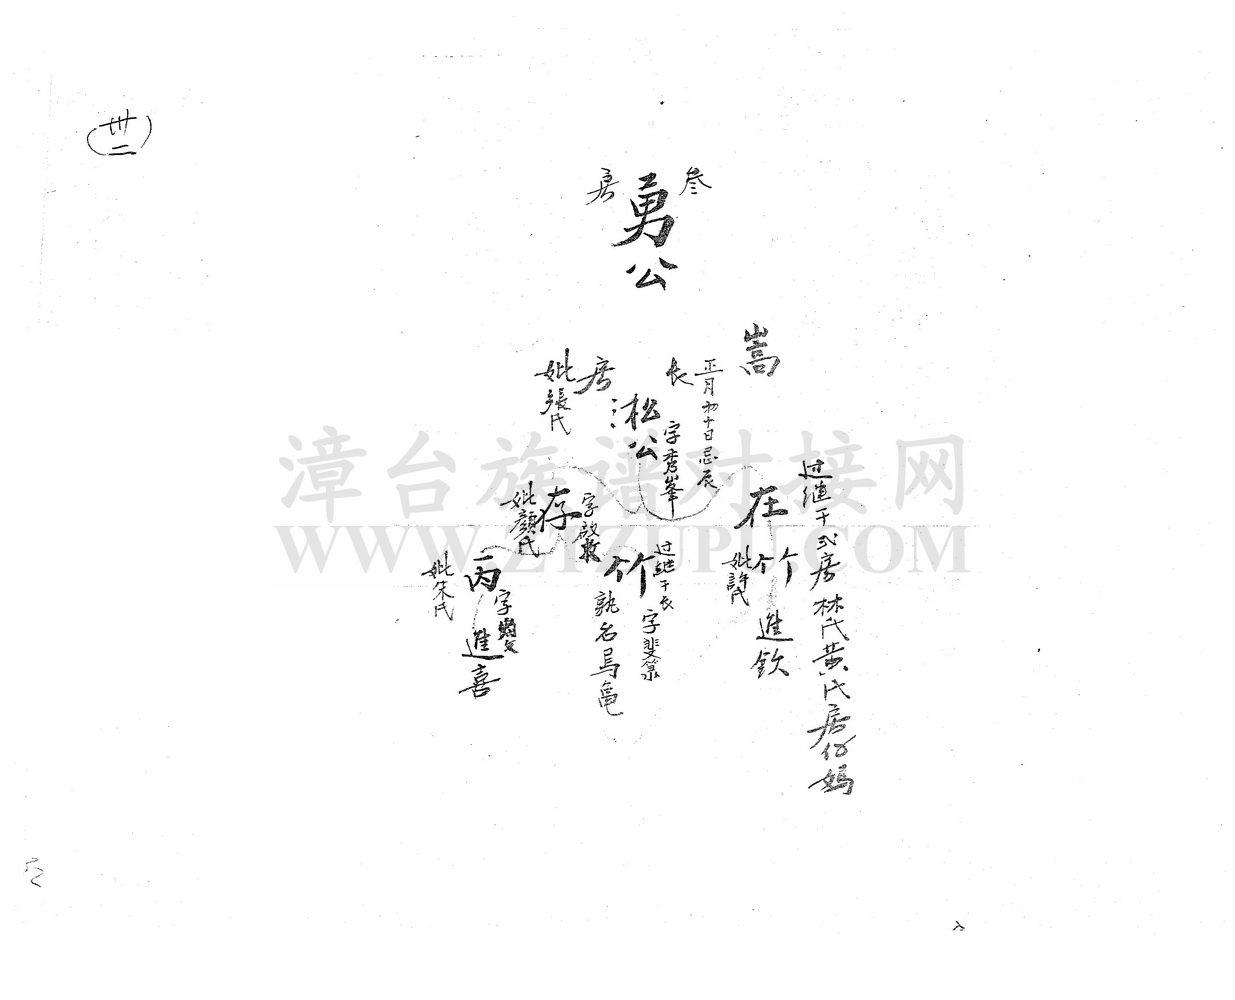 卅二
叁房
勇公
嵩
正月初十日忌辰
长房
淞公
字秀峯
妣張氏
过継于弍房林氏黄氏房份媽
在
竹
妣許氏
進欽
存
字啟
妣顏氏
过継于长
竹
字斐菉
孰名烏亀
丙
字
妣朱氏
進喜
漳台族谱对接网
WWW.ZTZUPU.COM